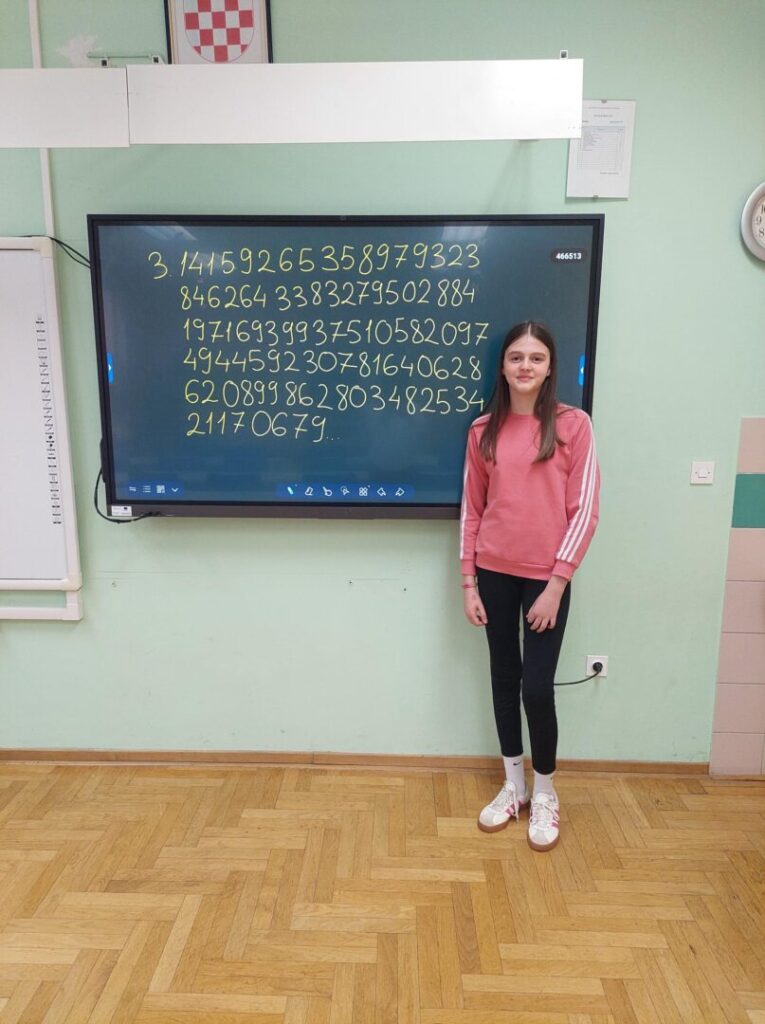 3.14159265358979323
466513
8462643383279502884
19716939937510582097
494459230781640628
620899862803482534
21170679...